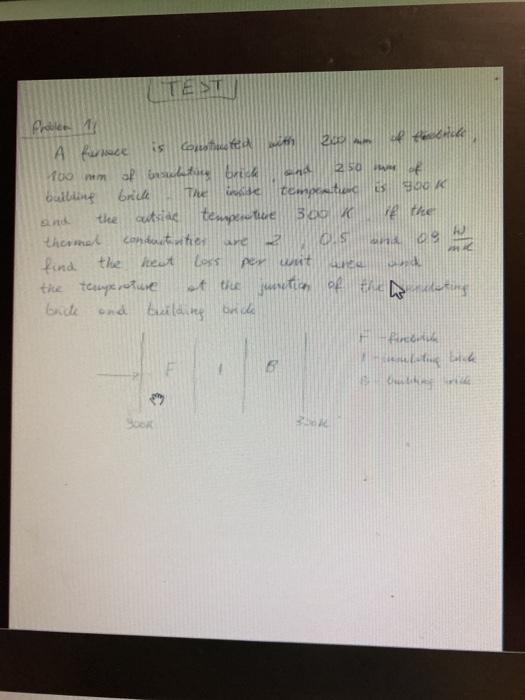 TEST
Problem 1)
A furnace is constructed with 200 mm of firebrick,
100 mm of insulating brick and 250 mm of
building brick. The inside temperature is 900 K
and the outside temperature 300 K. If the
thermal conductivities are 2, 0.5 and 0.9 W/mK
find the heat loss per unit area and
the temperature at the junction of the insulating
brick and building brick
F - firebrick
I - insulating brick
B - building brick
F I B
900K 300K